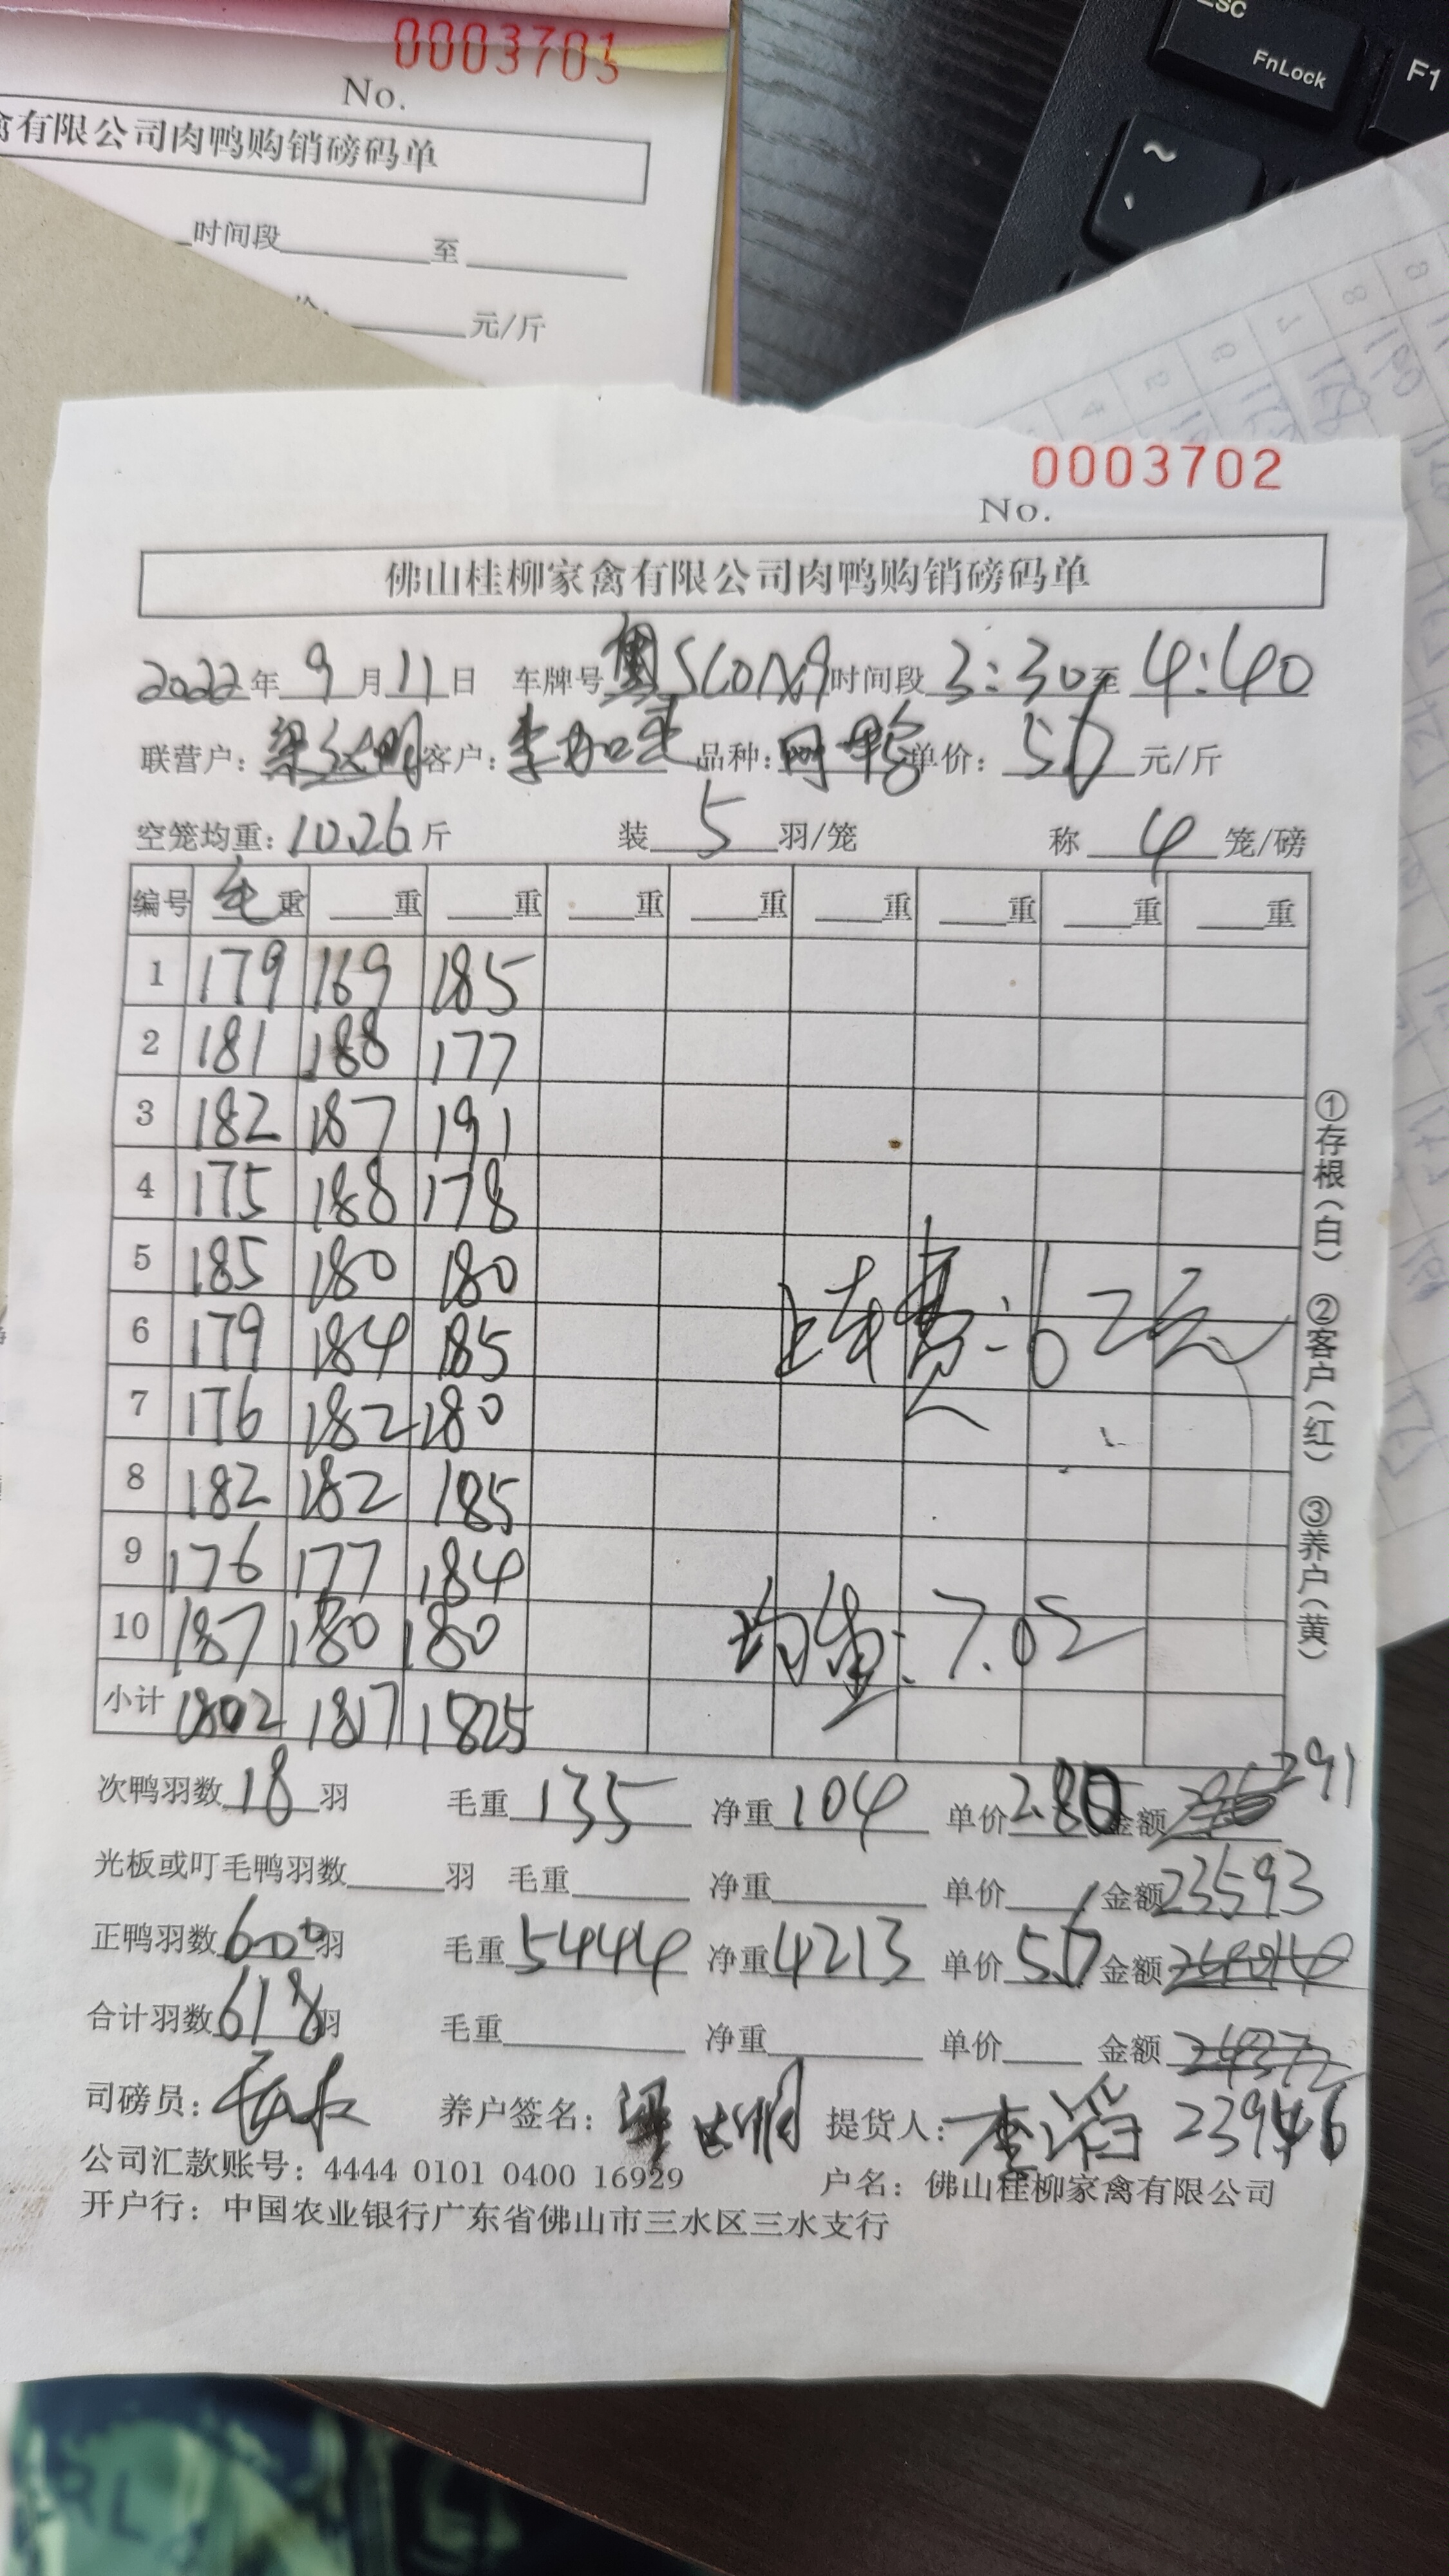 0003703
No.
禽有限公司肉鸭购销磅码单
时间段 至
元/斤
ESC
FnLock
F1
~
0003702
No.
佛山桂柳家禽有限公司肉鸭购销磅码单
2022年 9 月 11 日 车牌号 时间段 3:30 至 4:40
联营户: 客户: 品种: 单价: 5.6 元/斤
空笼均重: 10.26 斤 装 5 羽/笼 称 4 笼/磅
编号 毛重 重 重 重 重 重 重 重 重
1 179 169 185
2 181 188 177
3 182 187 191
4 175 188 178
5 185 180 180
上车费: 62元
6 179 184 185
7 176 182 180
8 182 182 185
9 176 177 184
均重: 7.02
10 187 180 180
小计 1802 1817 1825
①存根(白) ②客户(红) ③养户(黄)
次鸭羽数 18 羽 毛重 135 净重 104 单价 2.80 金额 291
光板或叮毛鸭羽数 羽 毛重 净重 单价 金额 23593
正鸭羽数 600 羽 毛重 5444 净重 4213 单价 5.6 金额
合计羽数 618 羽 毛重 净重 单价 金额
司磅员: 养户签名: 提货人: 李滔 23946
公司汇款账号: 4444 0101 0400 16929 户名: 佛山桂柳家禽有限公司
开户行: 中国农业银行广东省佛山市三水区三水支行